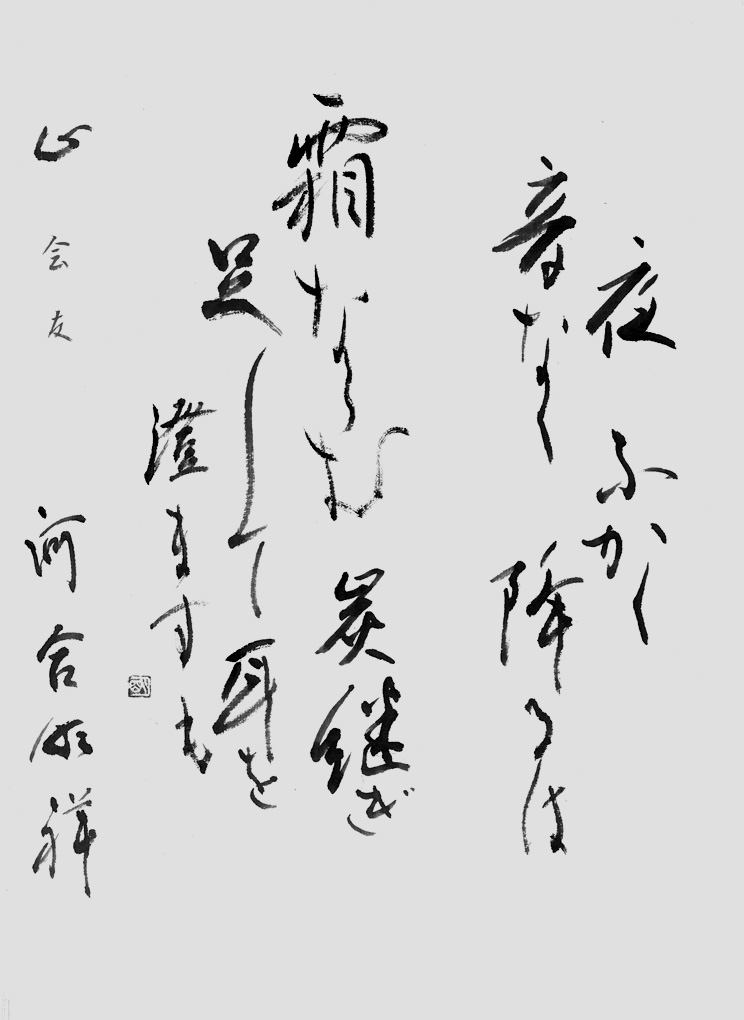 夜ふかく
音なく降るは
霜ならむ炭継ぎ
足して耳を
澄ますも
会友 河合
祥